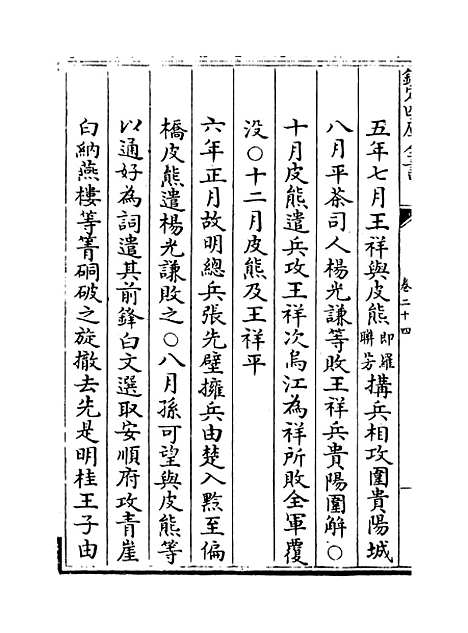 欽定四庫全書
卷二十四
五年七月王祥與皮熊即羅聯芳搆兵相攻圍貴陽城
八月平茶司人楊光謙等敗王祥兵貴陽圍解〇
十月皮熊遣兵攻王祥次烏江為祥所敗全軍覆
没〇十二月皮熊及王祥平
六年正月故明總兵張先壁擁兵由楚入黔至偏
橋皮熊遣楊光謙敗之〇八月孫可望與皮熊等
以通好為詞遣其前鋒白文選取安順府攻青崖
白納燕樓等箐硐破之旋撤去先是明桂王子由